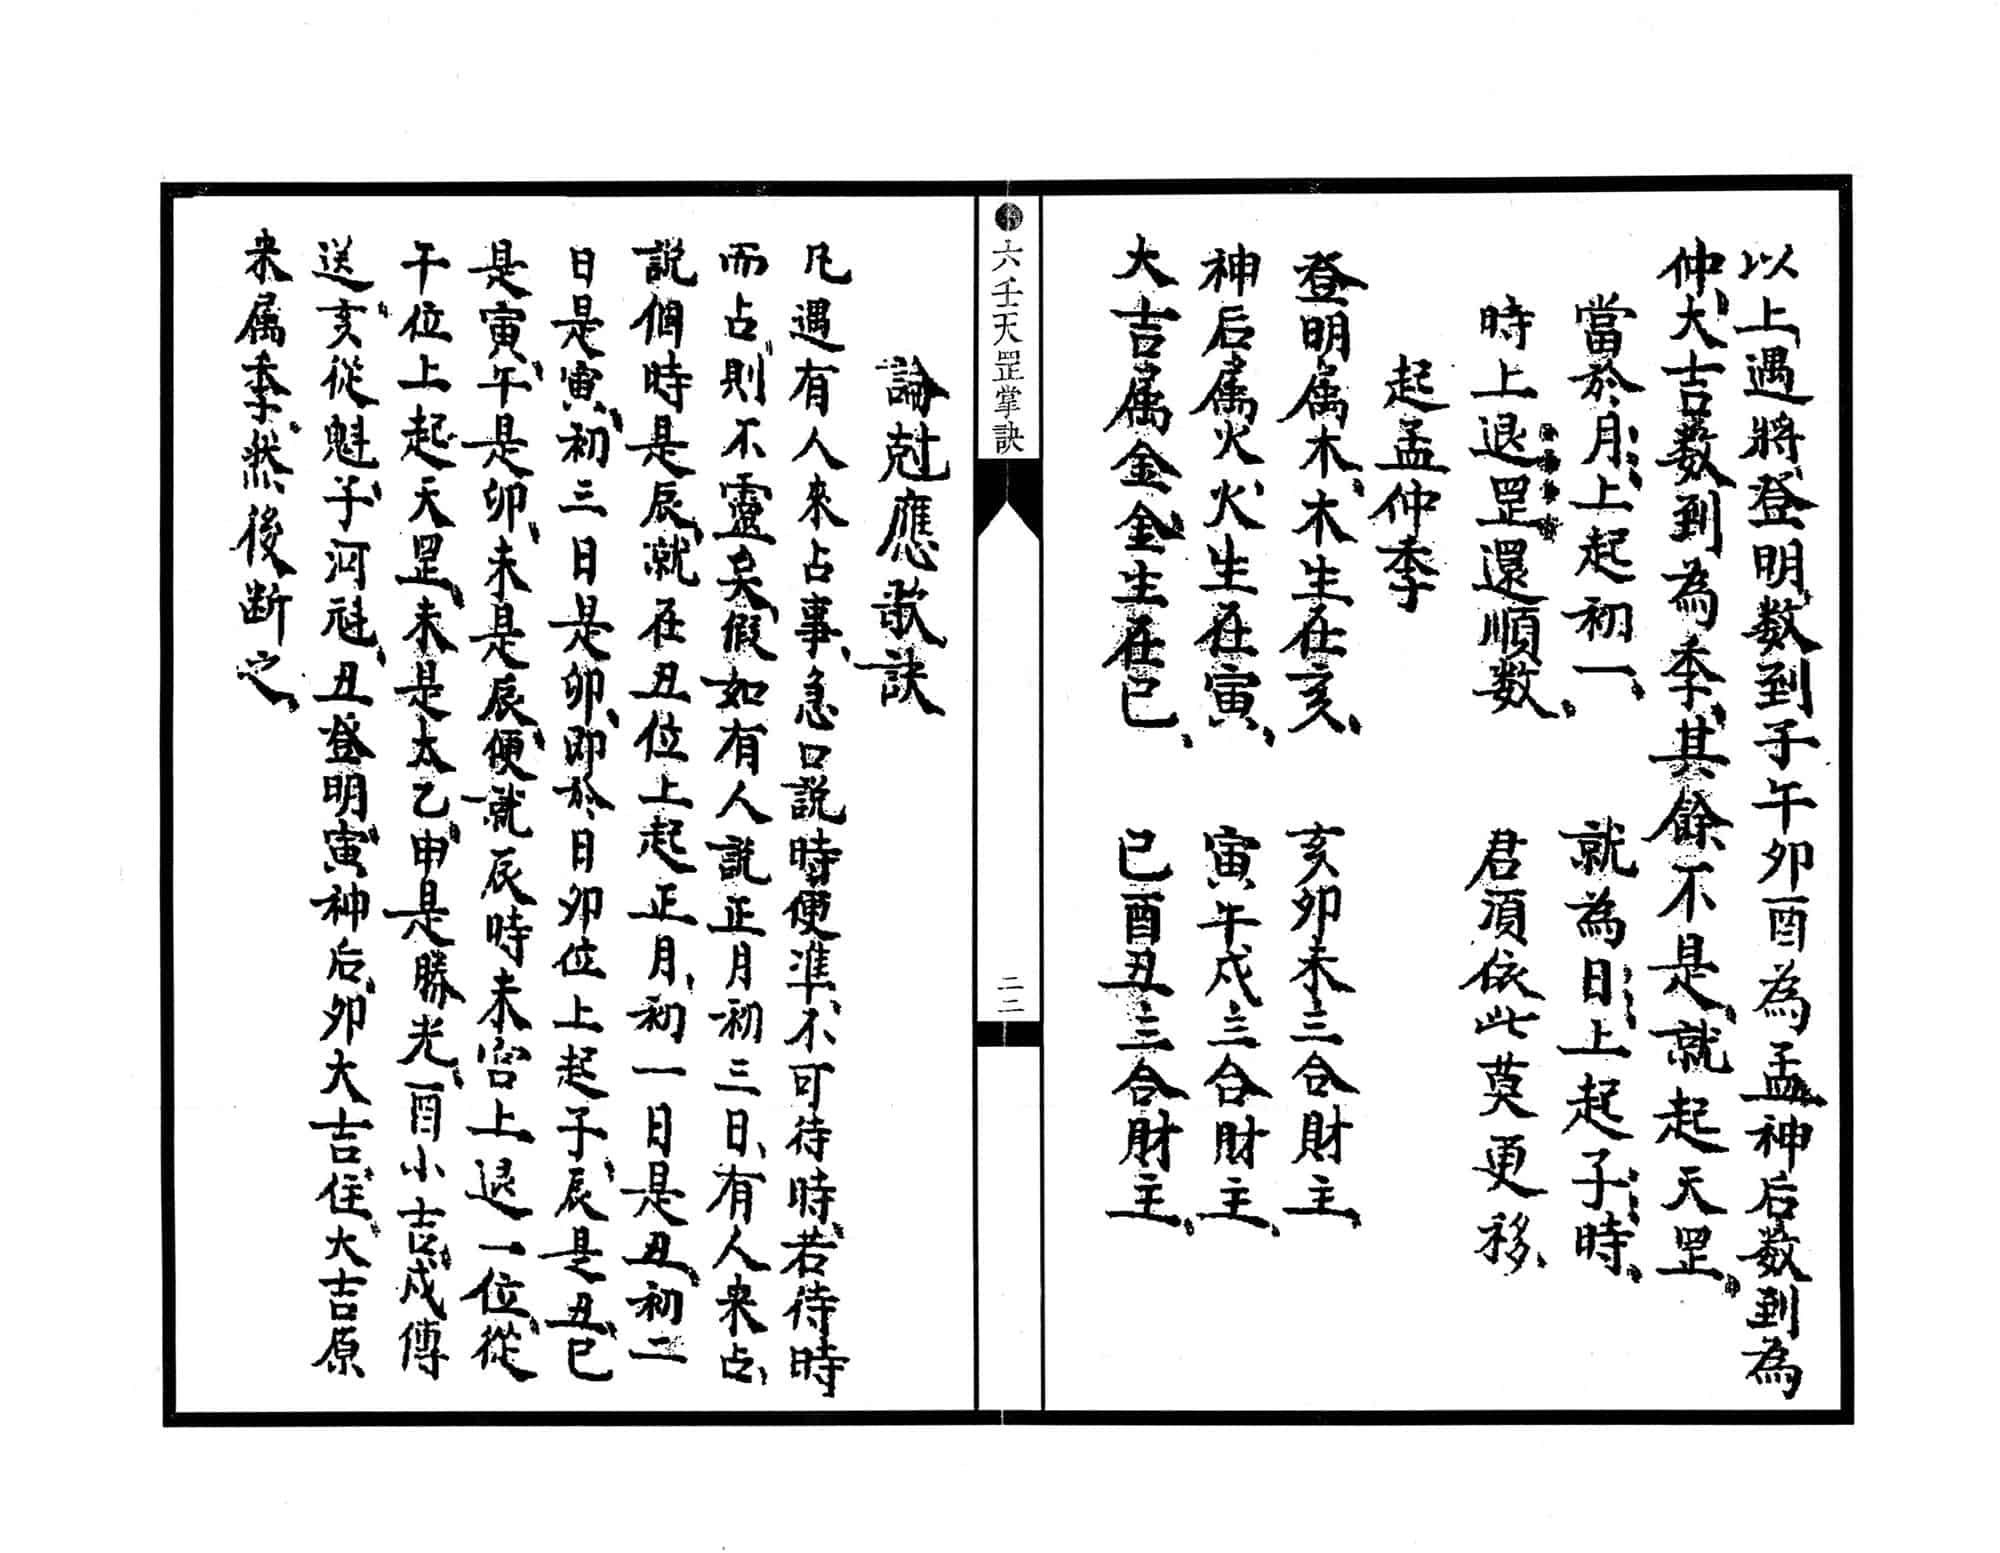 以上遇將登明数到子午卯酉為孟神后数到為
仲大吉数到為季其餘不是就起天罡
當於月上起初一 就為日上起子時
時上退罡還順数 君須依此莫更移
起孟仲季
登明属木木生在亥 亥卯未三合財主
神后属火火生在寅 寅午戌三合財主
大吉属金金生在巳 巳酉丑三合財主
六壬天罡掌訣
二二
論尅應歌訣
凡遇有人來占事急口説時便準不可待時若待時
而占則不靈矣假如有人説正月初三日有人来占
説個時是辰就在丑位上起正月初一日是丑初二
日是寅初三日是卯即於日卯位上起子辰是丑巳
是寅午是卯未是辰便就辰時未宮上退一位從
午位上起天罡未是太乙申是勝光酉小吉戌傳
送亥從魁子河魁丑登明寅神后卯大吉住大吉原
来属季然後断之